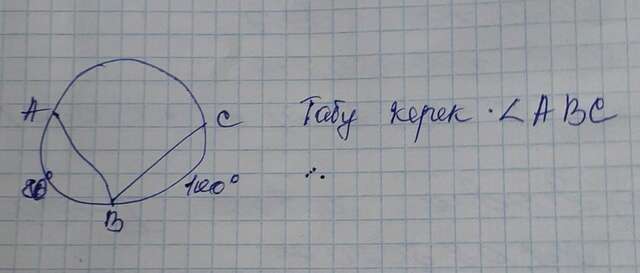 A
C
Табу керек. ∠ABC
80°
100°
B